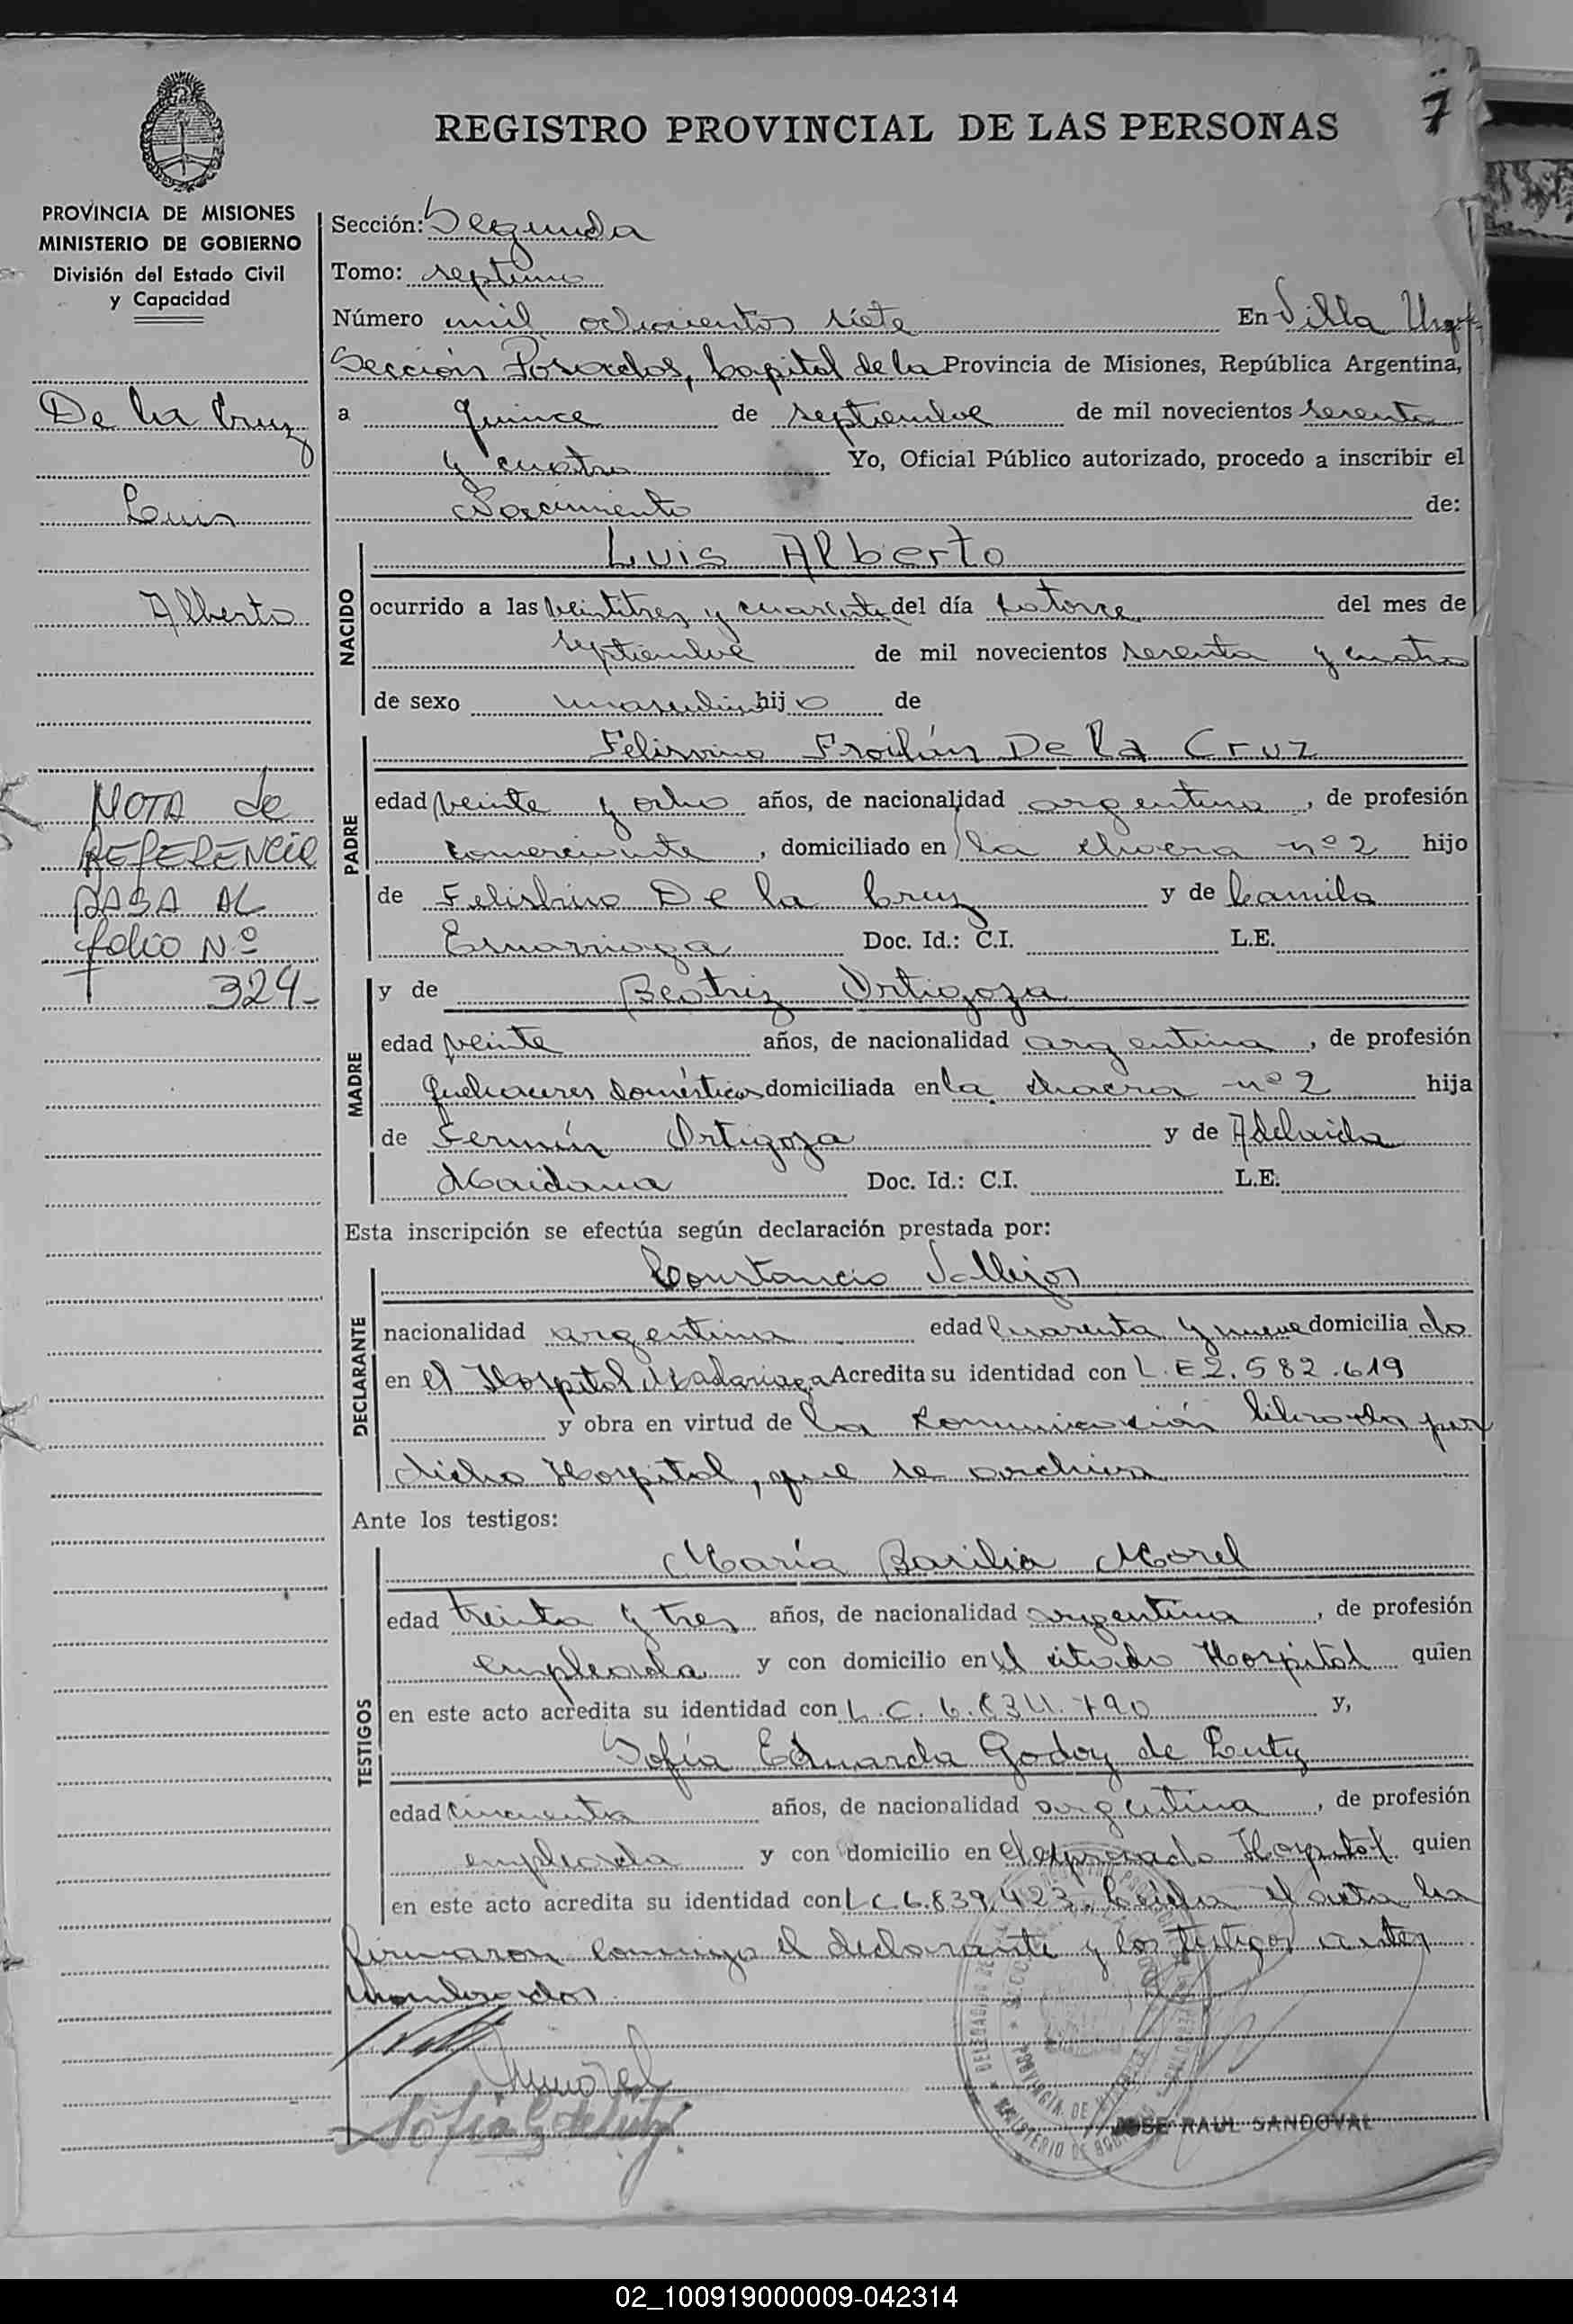 7
REGISTRO PROVINCIAL DE LAS PERSONAS
PROVINCIA DE MISIONES
MINISTERIO DE GOBIERNO
División del Estado Civil
y Capacidad
De la Cruz
Luis
Alberto
NOTA de
REFERENCIA
PASA AL
folio Nº
324-
Sección: Segunda
Tomo: septimo
Número mil ochocientos siete En Villa
Sección Posadas, Capital de la Provincia de Misiones, República Argentina,
a quince de septiembre de mil novecientos sesenta
y cuatro Yo, Oficial Público autorizado, procedo a inscribir el
Nacimiento de:
NACIDO
Luis Alberto
ocurrido a las veintitres y cuarenta del día catorce del mes de
septiembre de mil novecientos sesenta y cuatro
de sexo masculino hijo de
PADRE
Felisvino Froilán De la Cruz
edad veinte y ocho años, de nacionalidad argentina, de profesión
comerciante, domiciliado en la chacra nº 2 hijo
de De la Cruz y de Camila
Doc. Id.: C.I. L.E.
MADRE
y de Beatriz Ortigoza
edad veinte años, de nacionalidad argentina, de profesión
quehaceres domésticos domiciliada en la chacra nº 2 hija
de Fermín Ortigoza y de Adelaida
Maidana Doc. Id.: C.I. L.E.
Esta inscripción se efectúa según declaración prestada por:
DECLARANTE
Constancio Vallejos
nacionalidad argentina edad cuarenta y nueve domiciliado
en el Hospital Madariaga Acredita su identidad con L.E 2.582.619
y obra en virtud de la comunicación librada por
dicho Hospital, que se archiva
Ante los testigos:
TESTIGOS
María Basilia Morel
edad treinta y tres años, de nacionalidad argentina, de profesión
empleada y con domicilio en el citado Hospital quien
en este acto acredita su identidad con L.C. y,
Sofía Eduarda Godoy de Luty
edad cincuenta años, de nacionalidad argentina, de profesión
empleada y con domicilio en el expresado Hospital quien
en este acto acredita su identidad con L C 6.839.423. Leída el acta la
firmaron conmigo el declarante y los testigos antes
nombrados
JOSE RAUL SANDOVAL
02_100919000009-042314